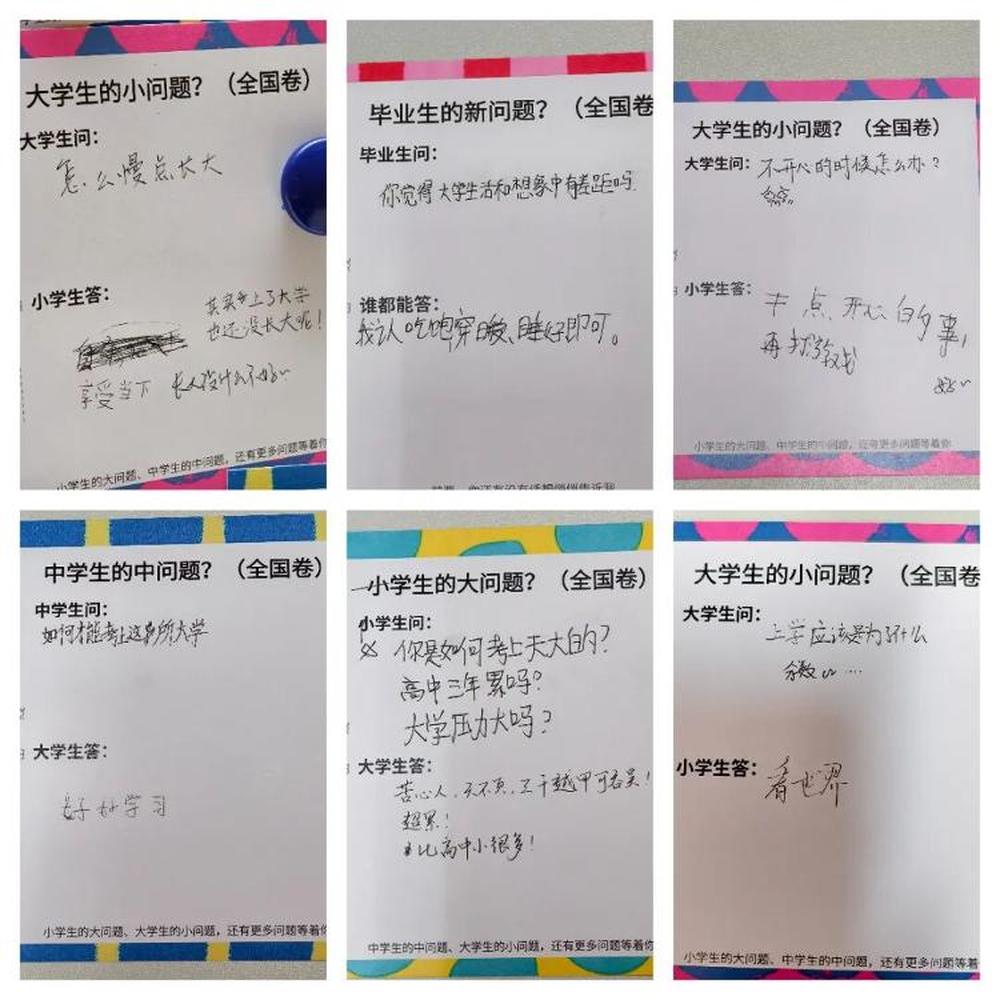 大学生的小问题？（全国卷）
大学生问：
怎么慢点长大
小学生答：
其实考上了大学
也还没长大呢！
享受当下 长大没什么不好~
小学生的大问题、中学生的中问题，还有更多问题等着你
毕业生的新问题？（全国卷
毕业生问：
你觉得大学生活和想象中有差距吗
谁都能答：
我认人吃饱穿暖、睡好即可。
大学生的小问题？（全国卷）
大学生问：
不开心的时候怎么办？
小学生答：
干点开心的事，
再打游戏
小学生的大问题、中学生的中问题，还有更多问题等着你
中学生的中问题？（全国卷）
中学生问：
如何才能考上这所大学
大学生答：
好好学习
小学生的大问题、大学生的小问题，还有更多问题等着你
小学生的大问题？（全国卷）
小学生问：
你是如何考上天大的？
高中三年累吗？
大学压力大吗？
大学生答：
苦心人，天不负，三千越甲可吞吴！
超累！
比高中小很多！
中学生的中问题、大学生的小问题，还有更多问题等着你
大学生的小问题？（全国卷
大学生问：
上学应该是为了什么
分数 ....
小学生答：
看世界
小学生的大问题、中学生的中问题，还有更多问题等着